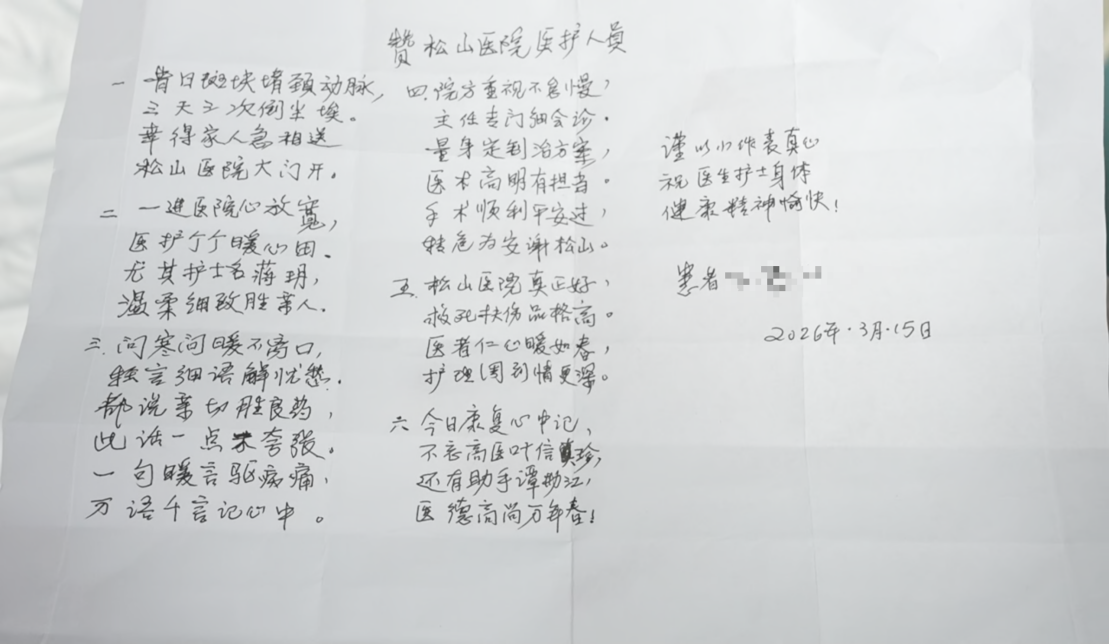 赞松山医院医护人员
一 昔日斑块堵颈动脉,
三天二次倒尘埃。
幸得家人急相送
松山医院大门开。
二 一进医院心放宽,
医护个个暖心田。
尤其护士名蒋玥,
温柔细致胜亲人.
三.问寒问暖不离口,
轻言细语解忧愁.
都说亲切胜良药,
此话一点未夸张。
一句暖言驱病痛,
万语千言记心中。
四.院方重视不怠慢,
主任专门细会诊.
量身定制治方案,
医术高明有担当.
手术顺利平安过,
转危为安谢松山。
五.松山医院真正好,
救死扶伤品格高。
医者仁心暖如春,
护理周到情更深。
六 今日康复心中记,
不忘高医叶信珍,
还有助手谭江,
医德高尚万年春!
谨以小作表真心
祝医生护士身体
健康精神愉快!
患者
2026年.3月.15日